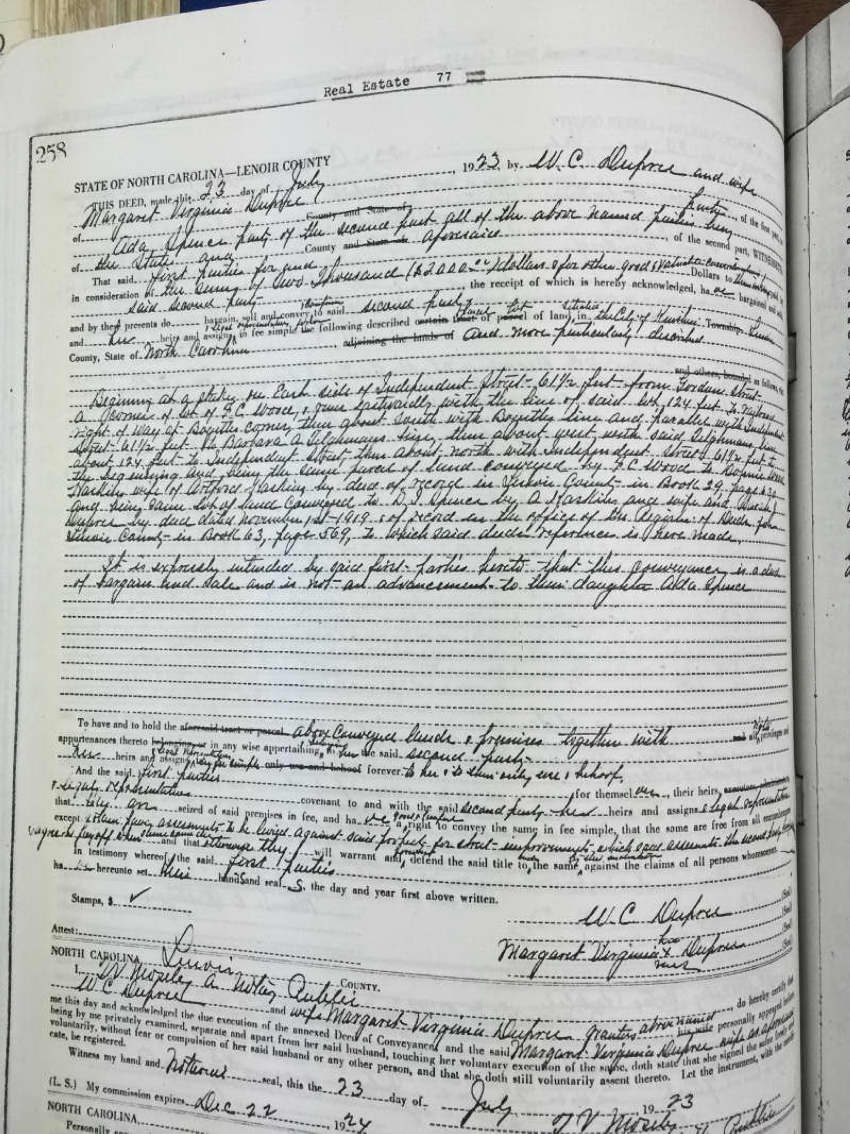 Real Estate 77
258
STATE OF NORTH CAROLINA—LENOIR COUNTY
THIS DEED, made this 23 day of July, 1923 by W. C. Dupree and wife
Margaret Virginia Dupree
of County and State of parties of the first part,
of Ada Spence party of the second part all of the above named parties being
of the State and County and State aforesaid, of the second part, WITNESSETH
That said first parties for and
in consideration of the sum of two Thousand ($2000.00) dollars & for other good & valuable considerations Dollars to them
said second party the receipt of which is hereby acknowledged, ha ve bargained and sold
and by these presents do bargain, sell and convey to said second party
and her heirs and assigns in fee simple the following described certain tract or parcel of land, in the City of Kinston Township Lenoir
County, State of North Carolina adjoining the lands of and more particularly described
and others, bounded as follows,
Beginning at a stake on East side of Independent Street 61½ feet from Gordon Street
a corner of lot of F. C. Wood, & runs Eastwardly with the line of said lot 124 feet to
right of way at corner, then about South with line and parallel with Independent
Street 61½ feet to Barbara A Tilghmans line, then about west with said Tilghmans line
about 124 feet to Independent Street then about north with Independent Street 61½ feet to
the beginning and being the same parcel of land conveyed by F C Wood to
Haskins wife of Haskins by deed of record in Lenoir County in Book 29 page
and being same lot of land conveyed to D. J. Spence by A Haskins and wife and
Dupree by deed dated November 1st 1919 & of record in the office of the Register of Deeds for
Lenoir County in Book 63, page 569, to which said deeds reference is here made.
It is expressly intended by said first parties hereto that this conveyance is a deed
of bargain and sale and is not an advancement to their daughter Ada Spence
To have and to hold the aforesaid tract or parcel above conveyed lands & premises together with all privileges and
appurtenances thereto belonging or in any wise appertaining, to her the said second party
her heirs and assigns in fee simple only use and behoof forever. to her & their only use & behoof,
And the said first parties for themselves, their heirs,
& legal representatives covenant to and with the said second party her heirs and assigns & legal representatives
that they are seized of said premises in fee, and ha ve a good & perfect right to convey the same in fee simple, that the same are free from all encumbrances
except to be levied against said property for street improvements which assessments the second party
and that otherwise they will warrant and defend the said title to the same against the claims of all persons whomsoever.
In testimony whereof the said first parties
ha ve hereunto set their hands and seals, the day and year first above written.
Stamps, $ ✓
W. C. Dupree (Seal)
Attest:
Margaret Virginia her X mark Dupree (Seal)
NORTH CAROLINA, Lenoir COUNTY.
I, T V Moseley a Notary Public, do hereby certify that
W C Dupree and wife Margaret Virginia Dupree grantors above named personally appeared before
me this day and acknowledged the due execution of the annexed Deed of Conveyance, and the said Margaret Virginia Dupree wife as aforesaid
being by me privately examined, separate and apart from her said husband, touching her voluntary execution of the same, doth state that she signed the same freely and
voluntarily, without fear or compulsion of her said husband or any other person, and that she doth still voluntarily assent thereto. Let the instrument, with the
cate, be registered.
Witness my hand and Notarial seal, this the 23 day of July 1923
(L. S.) My commission expires Dec 22 1924 T V Moseley Public
NORTH CAROLINA
Personally